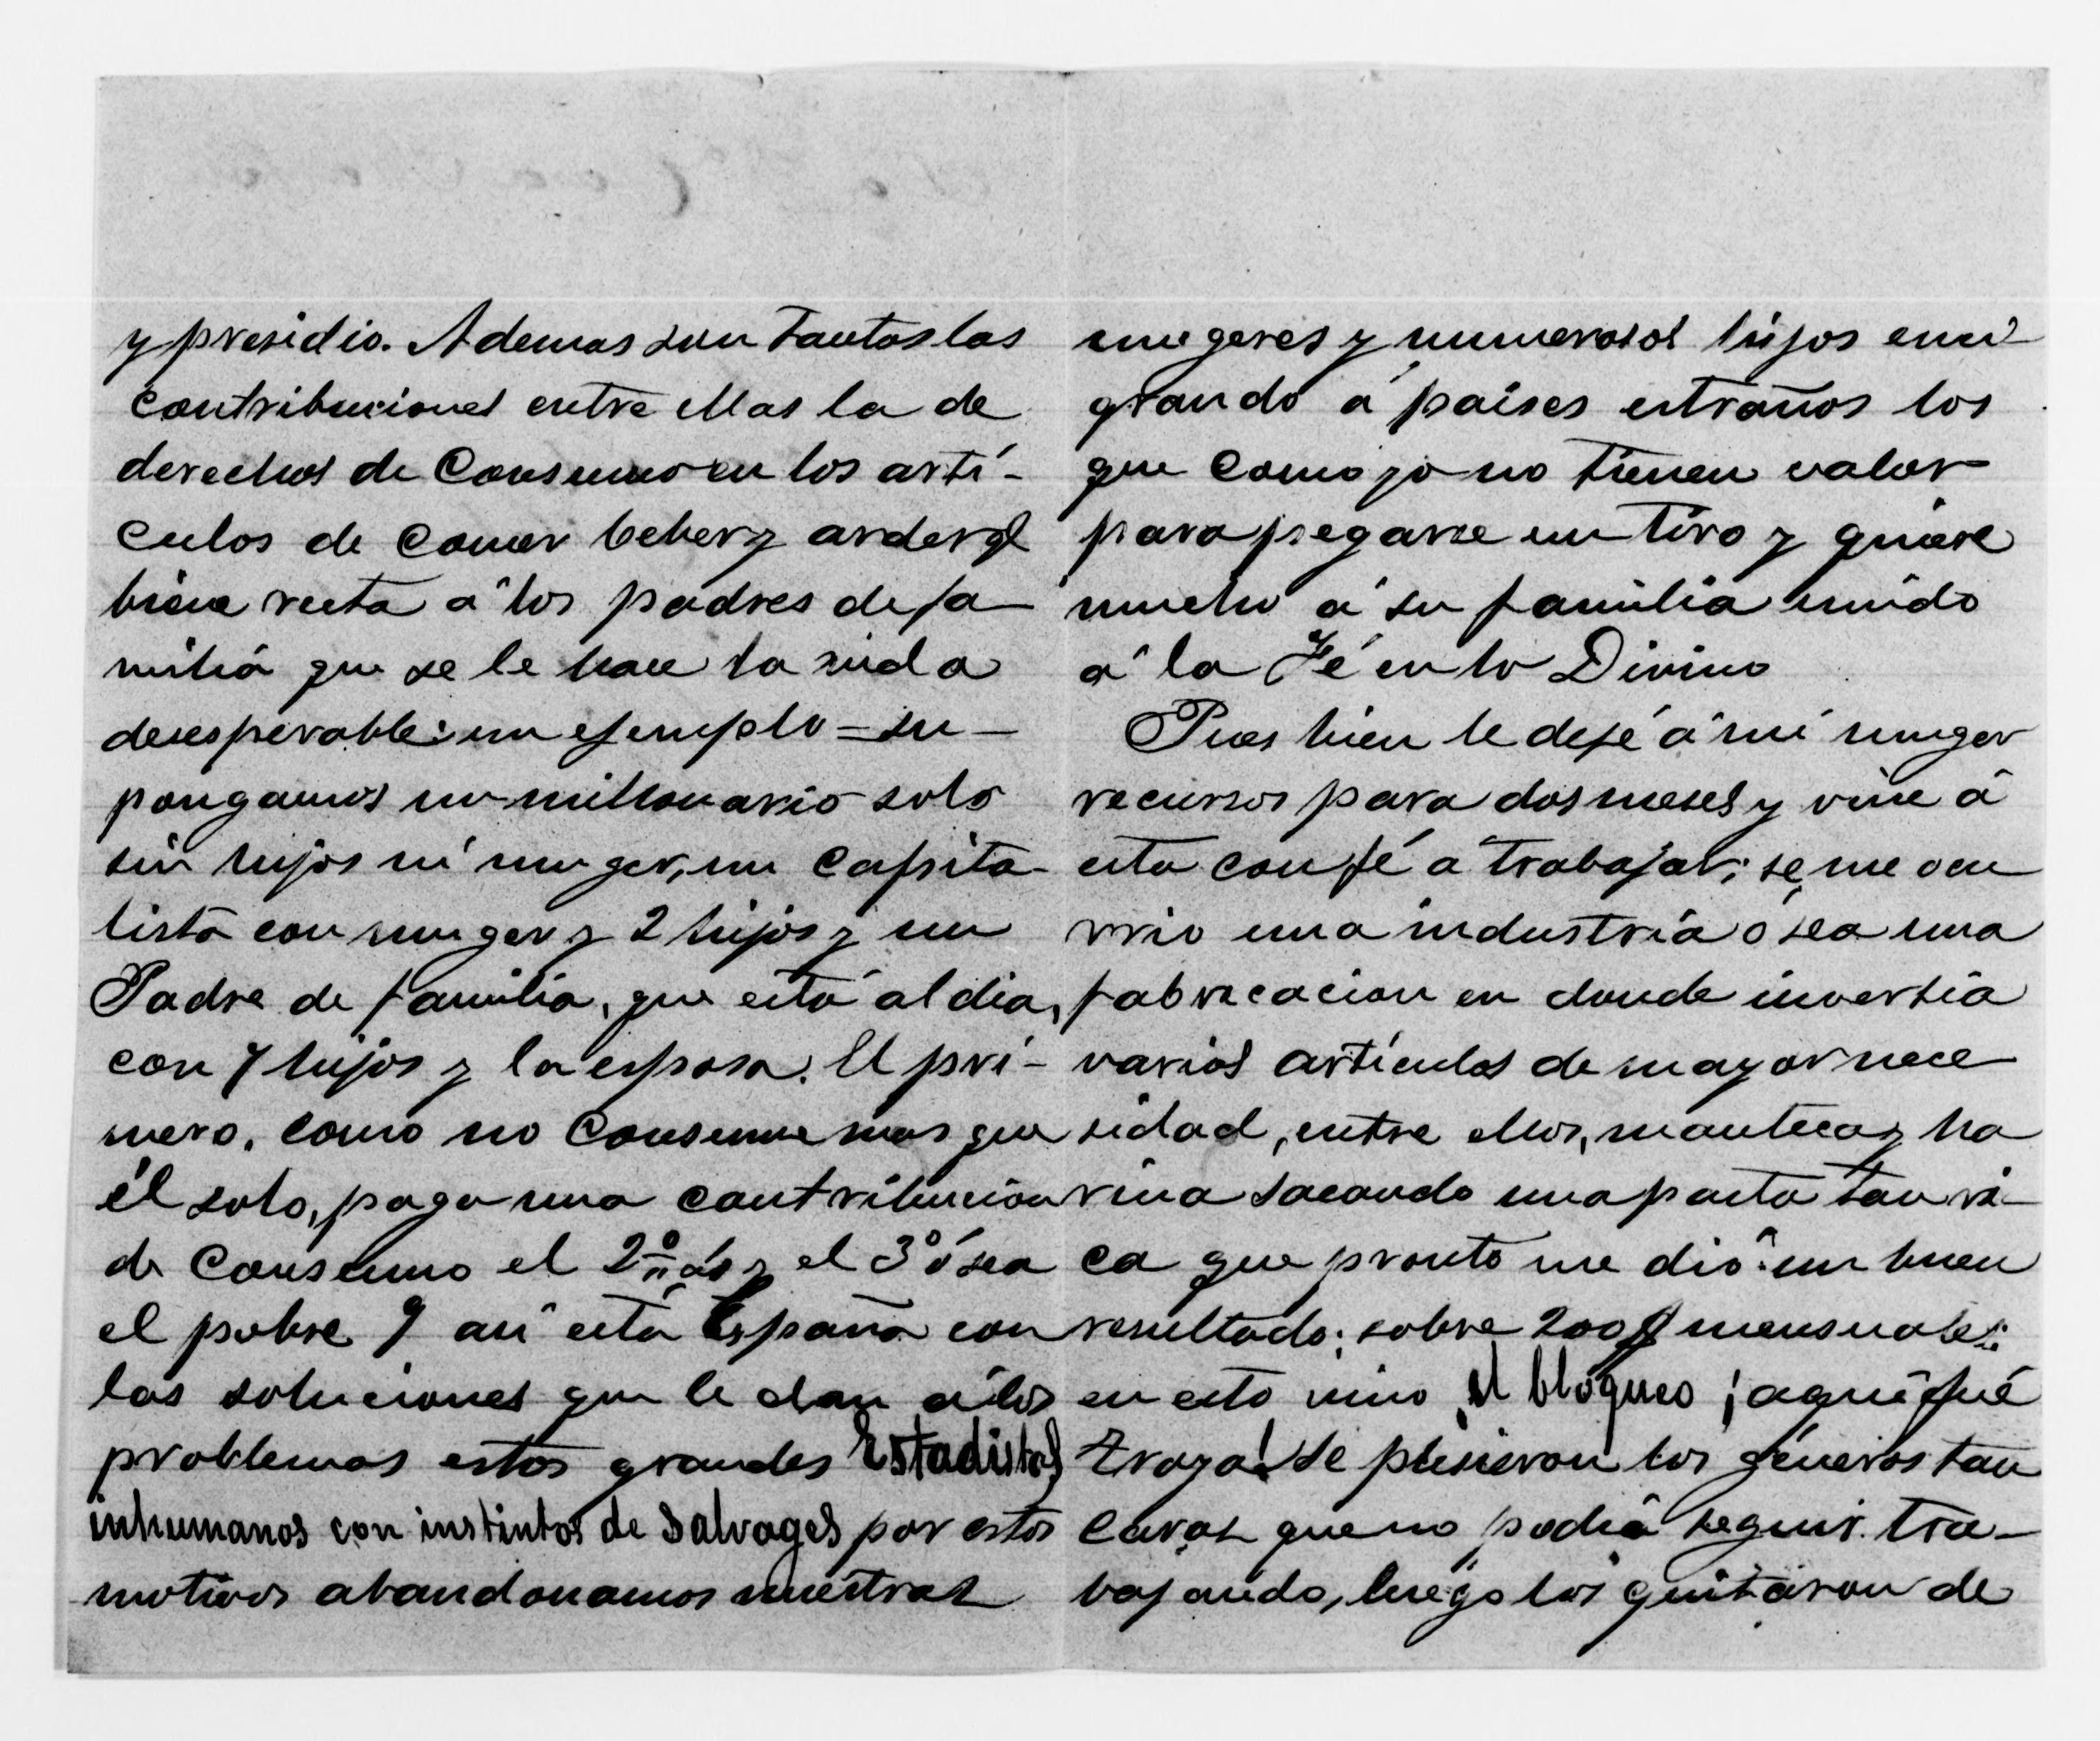 y presidio. Ademas son tantas las
contribuciones entre ellas la de
derechos de Consumo en los artí-
culos de comer beber y arder
biene recta á los padres de fa-
miliá que se le hace la vida
desesperable: un ejemplo = su-
pongamos un millonario solo
sin hijos ni muger, un capita-
lista con muger y 2 hijos y un
Padre de familia, que está al dia,
con 7 hijos y la esposa. El pri-
mero, como no consume mas que
él solo, paga una contribucion
de Consumo el 2º dos y el 3º ó sea
el pobre 9 asi está España con
las soluciones que le dan á los
problemas estos grandes Estadistas
inhumanos con instintos de salvages por estos
motivos abandonamos nuestras
mugeres y numerosos hijos emi-
grando á países estraños los
que como yo no tienen valor
para pegarse un tiro y quiere
mucho á su familia unido
á la Fé en lo Divino
Pues bien le dejé á mi muger
recursos para dos meses y vine á
esta con fé a trabajar; se me ocu
rrio una industria ó sea una
fabricacion en donde invertia
varios artículos de mayor nece
sidad, entre ellos, manteca y ha
rina sacando una pasta tan ri-
ca que pronto me dió un buen
resultado; sobre 200$ mensuales:
en esto vino el bloqueo ¡aqui fué
Troya! Se pusieron los géneros tan
caros que no podia seguir tra-
bajando, luego los quitaron de